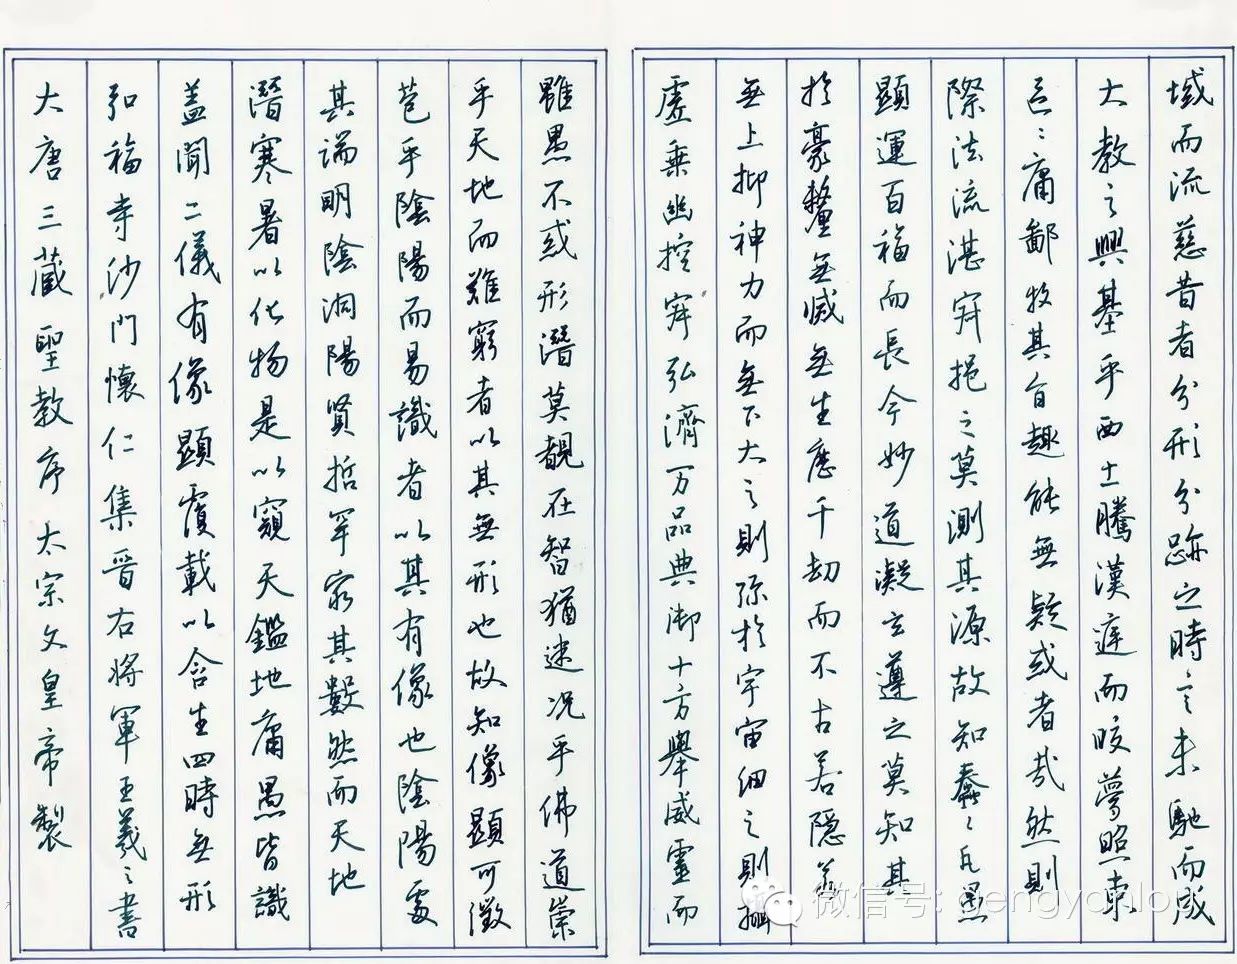 大唐三藏聖教序太宗文皇帝製
弘福寺沙門懷仁集晉右將軍王羲之書
盖聞二儀有像顯覆載以含生四時無形
潛寒暑以化物是以窺天鑑地庸愚皆識
其端明陰洞陽賢哲罕窮其數然而天地
苞乎陰陽而易識者以其有像也陰陽處
乎天地而難窮者以其無形也故知像顯可徵
雖愚不惑形潛莫覩在智猶迷况乎佛道崇
虛乘幽控寂弘濟万品典御十方舉威靈而
無上抑神力而無下大之則弥於宇宙細之則攝
於豪釐無滅無生歷千劫而不古若隱若
顯運百福而長今妙道凝玄遵之莫知其
際法流湛寂挹之莫測其源故知蠢〻凡愚
區〻庸鄙投其旨趣能無疑或者哉然則
大教之興基乎西土騰漢庭而皎夢照東
域而流慈昔者分形分跡之時言未馳而成
微信号: